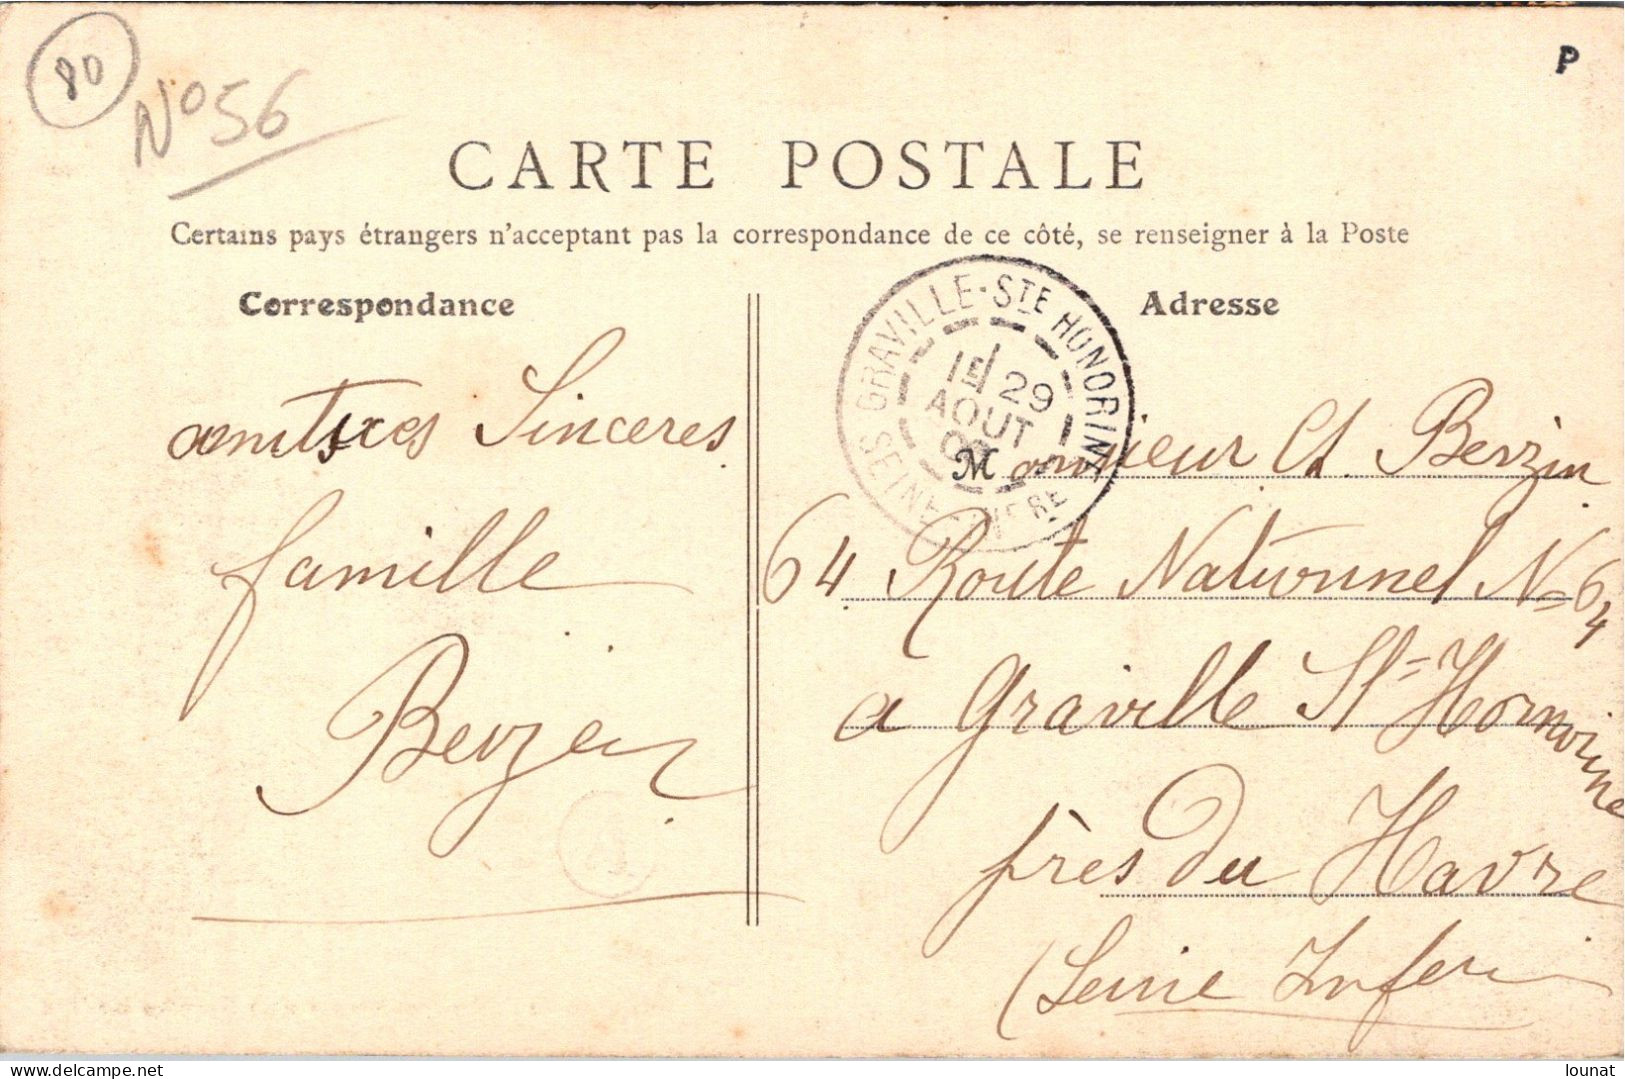 80
N° 56
P
CARTE POSTALE
Certains pays étrangers n'acceptent pas la correspondance de ce côté, se renseigner à la Poste
Correspondance
amitsxes Sinceres
famille
Adresse
GRAVILLE-STE HONORINE
29
AOUT
SEINE INFRE
Monsieur Ch. Berzin
64 Route Nationnel N= 64
a Graville St-Honnorine
près du Havre
(Seine Infer
delcampe.net
lounat